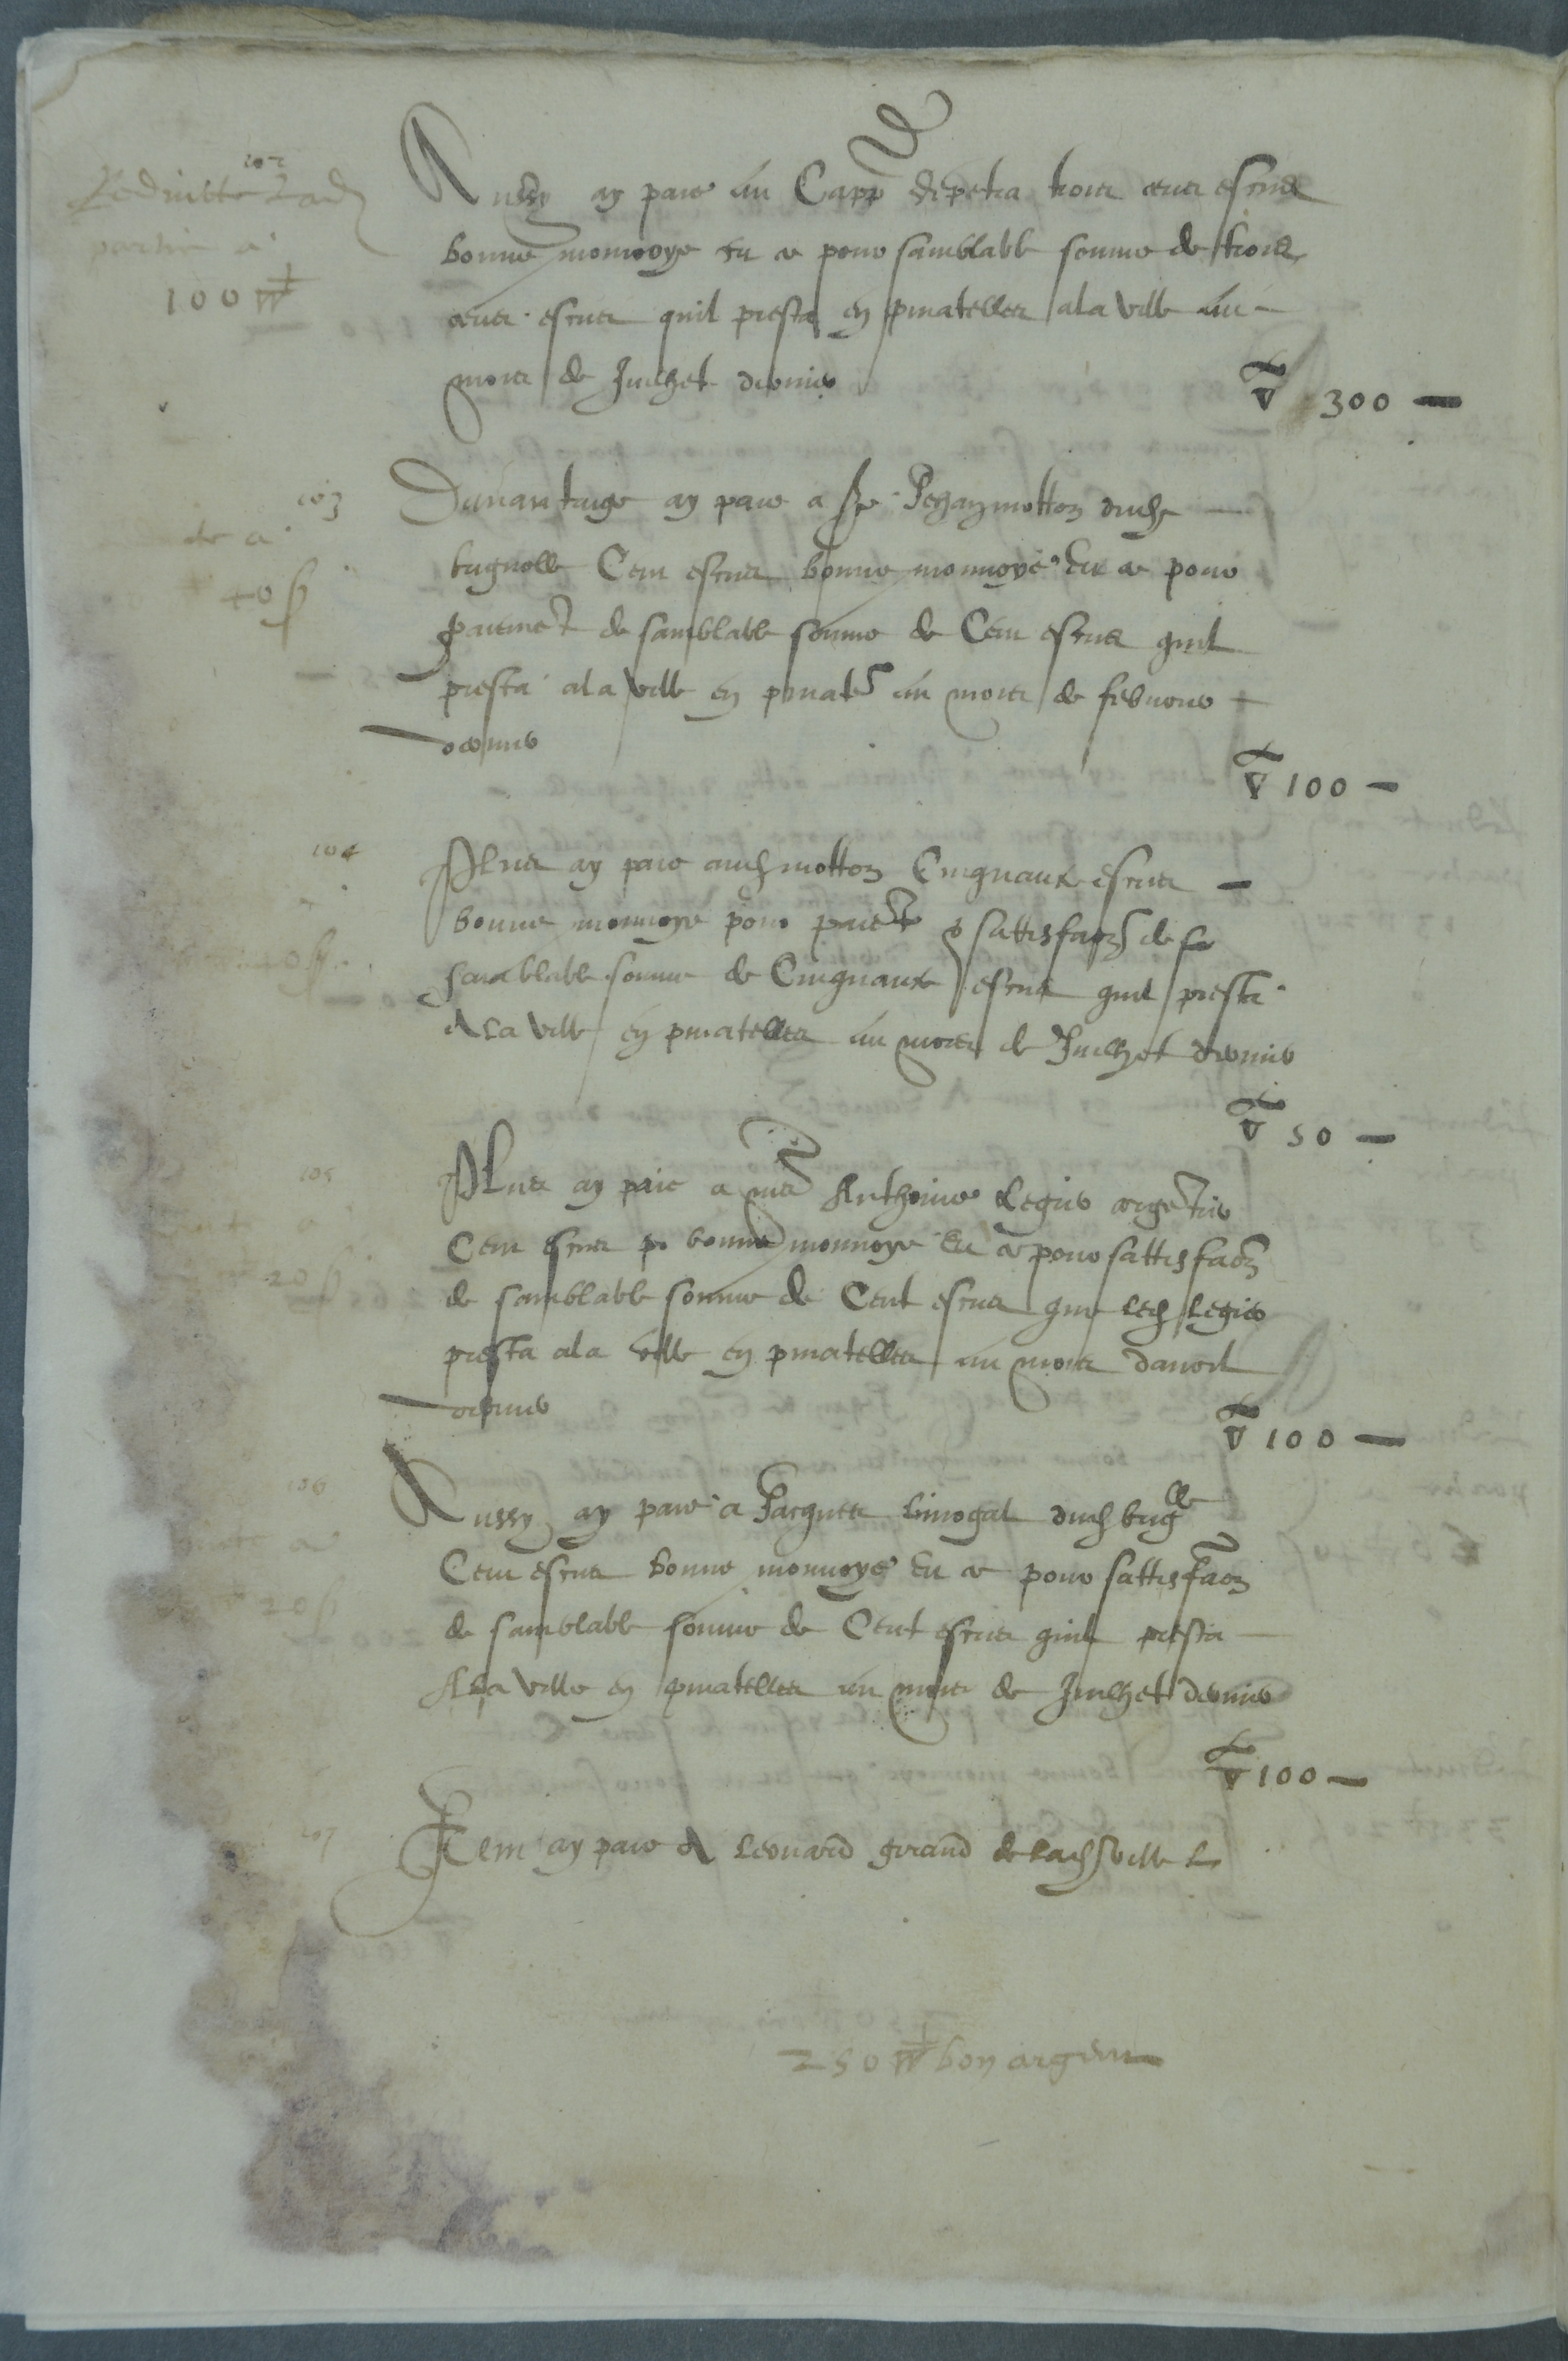 102
Reduitte lad
partie a
100 ₶
Aussy ay paie au Capp depetra trois cens escus
bonne monnoye Eu a pour samblable somme de trois
cens escus quil presta en pinatelles ala ville au
mois de Juilhet dernier
▽ 300
103
de a
40 ß
Davantaige ay paie a Sre Jehan motton duch
bugnolle Cens escus bonne monnoye Eu a pour
paiement de samblable somme de Cens escus quil
presta ala ville en pinates au mois de febvrier
dernier
▽ 100
104
Plus ay paie aud motton Cinquante escus
bonne monnoye pour paiet & sattisfaon de se
samblable somme de Cinquante escus quil presta
A la ville en pinatelles au mois de Juilhet dernier
▽ 50
105
a
20 ß
Plus ay paie a me Anthoine Legier argetier
Cens escus bonne monnoye Eu a pour sattisfaon
de samblable somme de Cent escus que led Legier
presta ala ville en pinatelles au mois davril
dernier
▽ 100
106
a
20 ß
Aussy ay paie a Jacques Limogal dud bugle
Cens escus bonne monnoye Eu a pour sattisfaon
de samblable somme de Cent escus quil presta
A la ville en pinatelles au mois de Juilhet dernier
▽ 100
107
Item ay paie A Leonard girand de lad ville L
250 ₶ bon argent